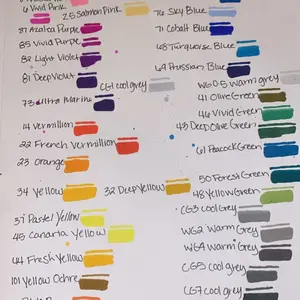 6 Vivid Pink
25 Salmon Pink
87 Azalea Purple
85 Vivid Purple
82 Light Violet
81 Deep Violet
CG1 cool grey
73 Ultra Marine
14 Vermillion
22 French Vermillion
23 Orange
34 Yellow
32 Deep Yellow
37 Pastel Yellow
45 Canaria Yellow
44 Fresh Yellow
101 Yellow Ochre
76 Sky Blue
71 Cobalt Blue
68 Turquoise Blue
69 Prussian Blue
WG0.5 Warm grey
41 Olive Green
46 Vivid Green
43 Deep Olive Green
61 Peacock Green
50 Forest Green
48 Yellow Green
CG3 Cool Grey
WG2 Warm Grey
WG4 Warm Grey
CG5 Cool grey
CG7 cool grey